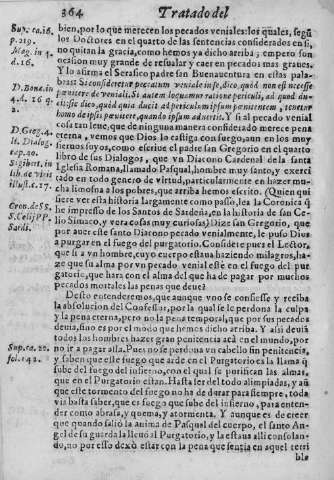 364 Tratado del
bien, por lo que merecen los pecados veniales: los quales, segũ
los Doctores en el quarto de las sentencias considerados en si,
no quitan la gracia, como hemos ya dicho arriba; empero son
ocasion muy grande de resualar y caer en pecados mas graues.
Y lo afirma el Serafico padre san Buenauentura en estas pala-
bras: Si consideretur peccatum veniale in se, dico, quòd non est
periculum veniali. Si autem
sic dico, quòd quia ducit ad periculum ipsum
homo de ipsis quando ipsum aduertit. Y si al pecado venial
cosa tan leue, que de ninguna manera considerado merece pena
eterna, vemos que Dios lo castiga con fuego, aun en los muy
sieruos suyos, como escriue el padre san Gregorio en el quarto
libro de sus Dialogos, que vn Diacono Cardenal de la santa
Iglesia Romana, llamado Pasqual, hombre muy santo, y exerci
tado en todo genero de virtud, particularmente en hazer mu-
cha limosna a los pobres, que arriba hemos escrito. (Quien qui
siere ver esta historia largamente como passò, lea la Coronica q̃
he impresso de los Santos de Sardeña, en la historia de san Ce-
lio Simaco, y vera cosas muy curiosas) Dize san Gregorio, que
por auer este santo Diacono pecado venialmente, le puso Dios
a purgar en el fuego del purgatorio. Considere pues el Lector,
que si a vn hombre, cuyo cuerpo estaua haziendo milagros, ha-
ze que su alma por vn pecado venial estè en el fuego del pur
gatorio, que hara con el alma del que ha de pagar por muchos
pecados mortales las penas que deue?
Desto entenderemos, que aunque vno se confiesse y reciba
la absolucion del Confessor, por la qual se le perdona la culpa
y la pena eterna, pero no la pena temporal, que por sus pecados
deuia, sino es por el modo que hemos dicho arriba. Y assi deuiã
todos los hombres hazer gran penitencia acà en el mundo, por
no ir a pagar alla. Pues no se perdona vn cabello sin penitencia,
y saben que este fuego que arde en el Purgatorio es la llama q̃
sube del fuego del infierno, con el qual se purifican las almas,
que en el Purgatorio estan. Hasta ser del todo alimpiadas, y aũ
que este tormento del fuego no ha de durar para siempre, toda
via basta saber, que es fuego que sube del infierno, para enten-
der como abrasa, y quema, y atormenta. Y aunque es de creer
que quando saliò la anima de Pasqual del cuerpo, el santo An-
gel de su guarda la lleuò al Purgatorio, y la estaua alli consolan-
do, no por esso dexò estar con la pena que sentia en aquel terri
ble
Sup. ca. 16.
p. 219.
Mag. in 4.
d. 16.
D. Bona. in
4. d. 16 q.
D. Greg. 4.
li. Dialog.
cap. 40.
Sigibert. in
lib. de viris
illust. c. 17.
Cron. de SS.
S. Celij PP.
Sardi.
Sup. ca. 22.
fol. 142.